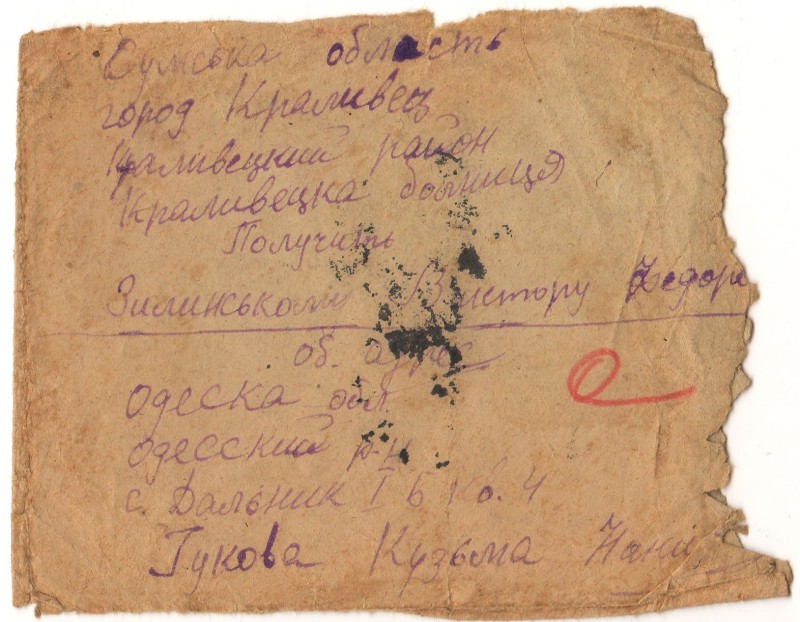 Сумська область
город Краливец
Краливецкий район
Краливецка больниця
Получить
Зилинському Виктору Федоро
об. адрес
Одеска обл.
Одесский р-н
с. Дальник I Б кв. 4
Гукова Кузьма